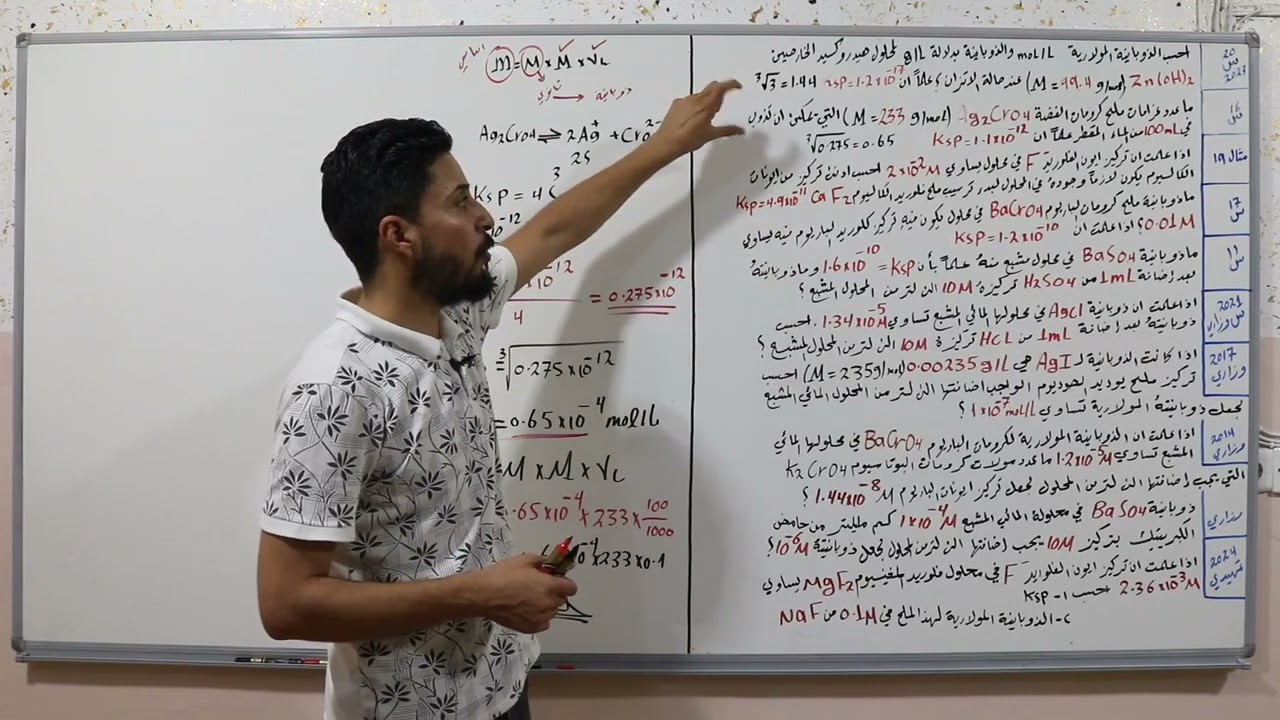 m = M × M × VL
الذوبانية
Ag2CrO4 ⇌ 2Ag+ + CrO 2-
2S
Ksp = 4 ( 3
10-12
10-12
4
= 0.275×10-12
= 3√0.275×10-12
= 0.65×10-4 mol/L
M × M × VL
.65×10-4 × 233 × 100/1000
-4 ×233×0.1
20 س 2023
احسب الذوبانية المولارية mol/L والذوبانية بدلالة g/L لمحلول هيدروكسيد الخارصين
Zn(OH)2 (M = 99.4 g/mol) عند حالة الاتزان علماً ان Ksp=1.2×10-17 3√3 = 1.44
16 س
ما عدد غرامات ملح كرومات الفضة Ag2CrO4 (M = 233 g/mol) التي يمكن ان تذوب
في 100mL من الماء المقطر علماً ان Ksp=1.1×10-12 3√0.275 = 0.65
مثال 19
اذا علمت ان تركيز ايون الفلوريد F- في محلول يساوي 2×10-2M احسب ادنى تركيز من ايونات
الكالسيوم يكون لازماً وجوده في المحلول لبدء ترسيب ملح فلوريد الكالسيوم CaF2 Ksp=4.9×10-11
17 س
ما ذوبانية ملح كرومات الباريوم BaCrO4 في محلول يكون فيه تركيز كلوريد الباريوم فيه يساوي
0.01M ؟ اذا علمت ان Ksp=1.2×10-10
11 س
ما ذوبانية BaSO4 في محلول مشبع منه علماً بأن Ksp = 1.6×10-10 وما ذوبانيته
بعد اضافة 1mL من H2SO4 تركيزه 10M الى لتر من المحلول المشبع ؟
2021 وزاري
اذا علمت ان ذوبانية AgCl في محلولها المائي المشبع تساوي 1.34×10-5M. احسب
ذوبانيته بعد اضافة 1mL من HCL تركيزه 10M الى لتر من المحلول المشبع ؟
2017 وزاري
اذا كانت الذوبانية لـ AgI هي 0.00235g/L (M = 235g/mol) احسب
تركيز ملح يوديد الصوديوم الواجب اضافتها الى لتر من المحلول المائي المشبع
لجعل ذوبانيته المولارية تساوي 1×10-7mol/L ؟
2014 وزاري
اذا علمت ان الذوبانية المولارية لكرومات الباريوم BaCrO4 في محلولها المائي
المشبع تساوي 1.2×10-5M ما عدد مولات كرومات البوتاسيوم K2CrO4
التي يجب اضافتها الى لتر من المحلول لجعل تركيز ايونات الباريوم 1.44×10-8 M ؟
وزاري
ذوبانية BaSO4 في محلولة المائي المشبع 1×10-4M كم مليلتر من حامض
الكبريتيك بتركيز 10M يجب اضافتها الى لتر من المحلول لجعل ذوبانيتة 10-6M ؟
2024 تمهيدي
اذا علمت ان تركيز ايون الفلورايد F- في محلول فلوريد المغنيسيوم MgF2 يساوي
2.36×10-3M احسب 1- Ksp
2- الذوبانية المولارية لهذا الملح في 0.1M من NaF